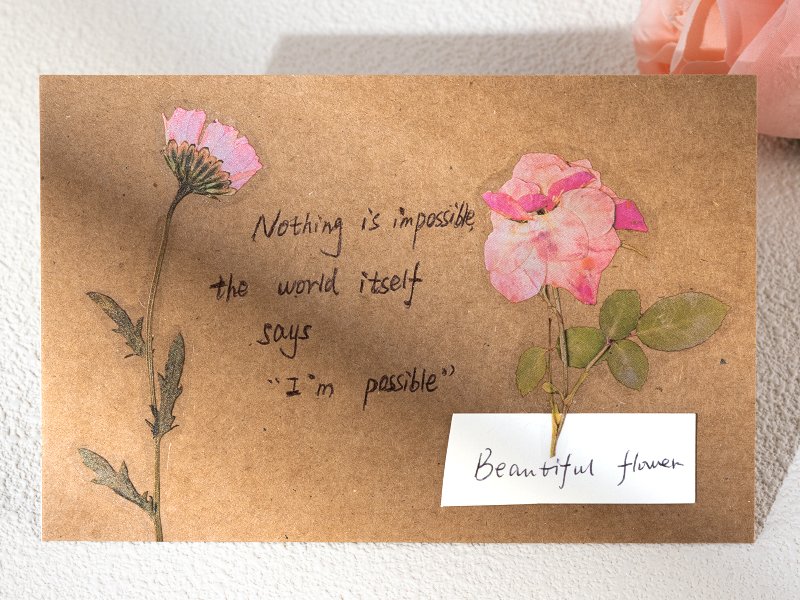 Nothing is impossible,
the world itself
says
"I'm possible"
Beautiful flower